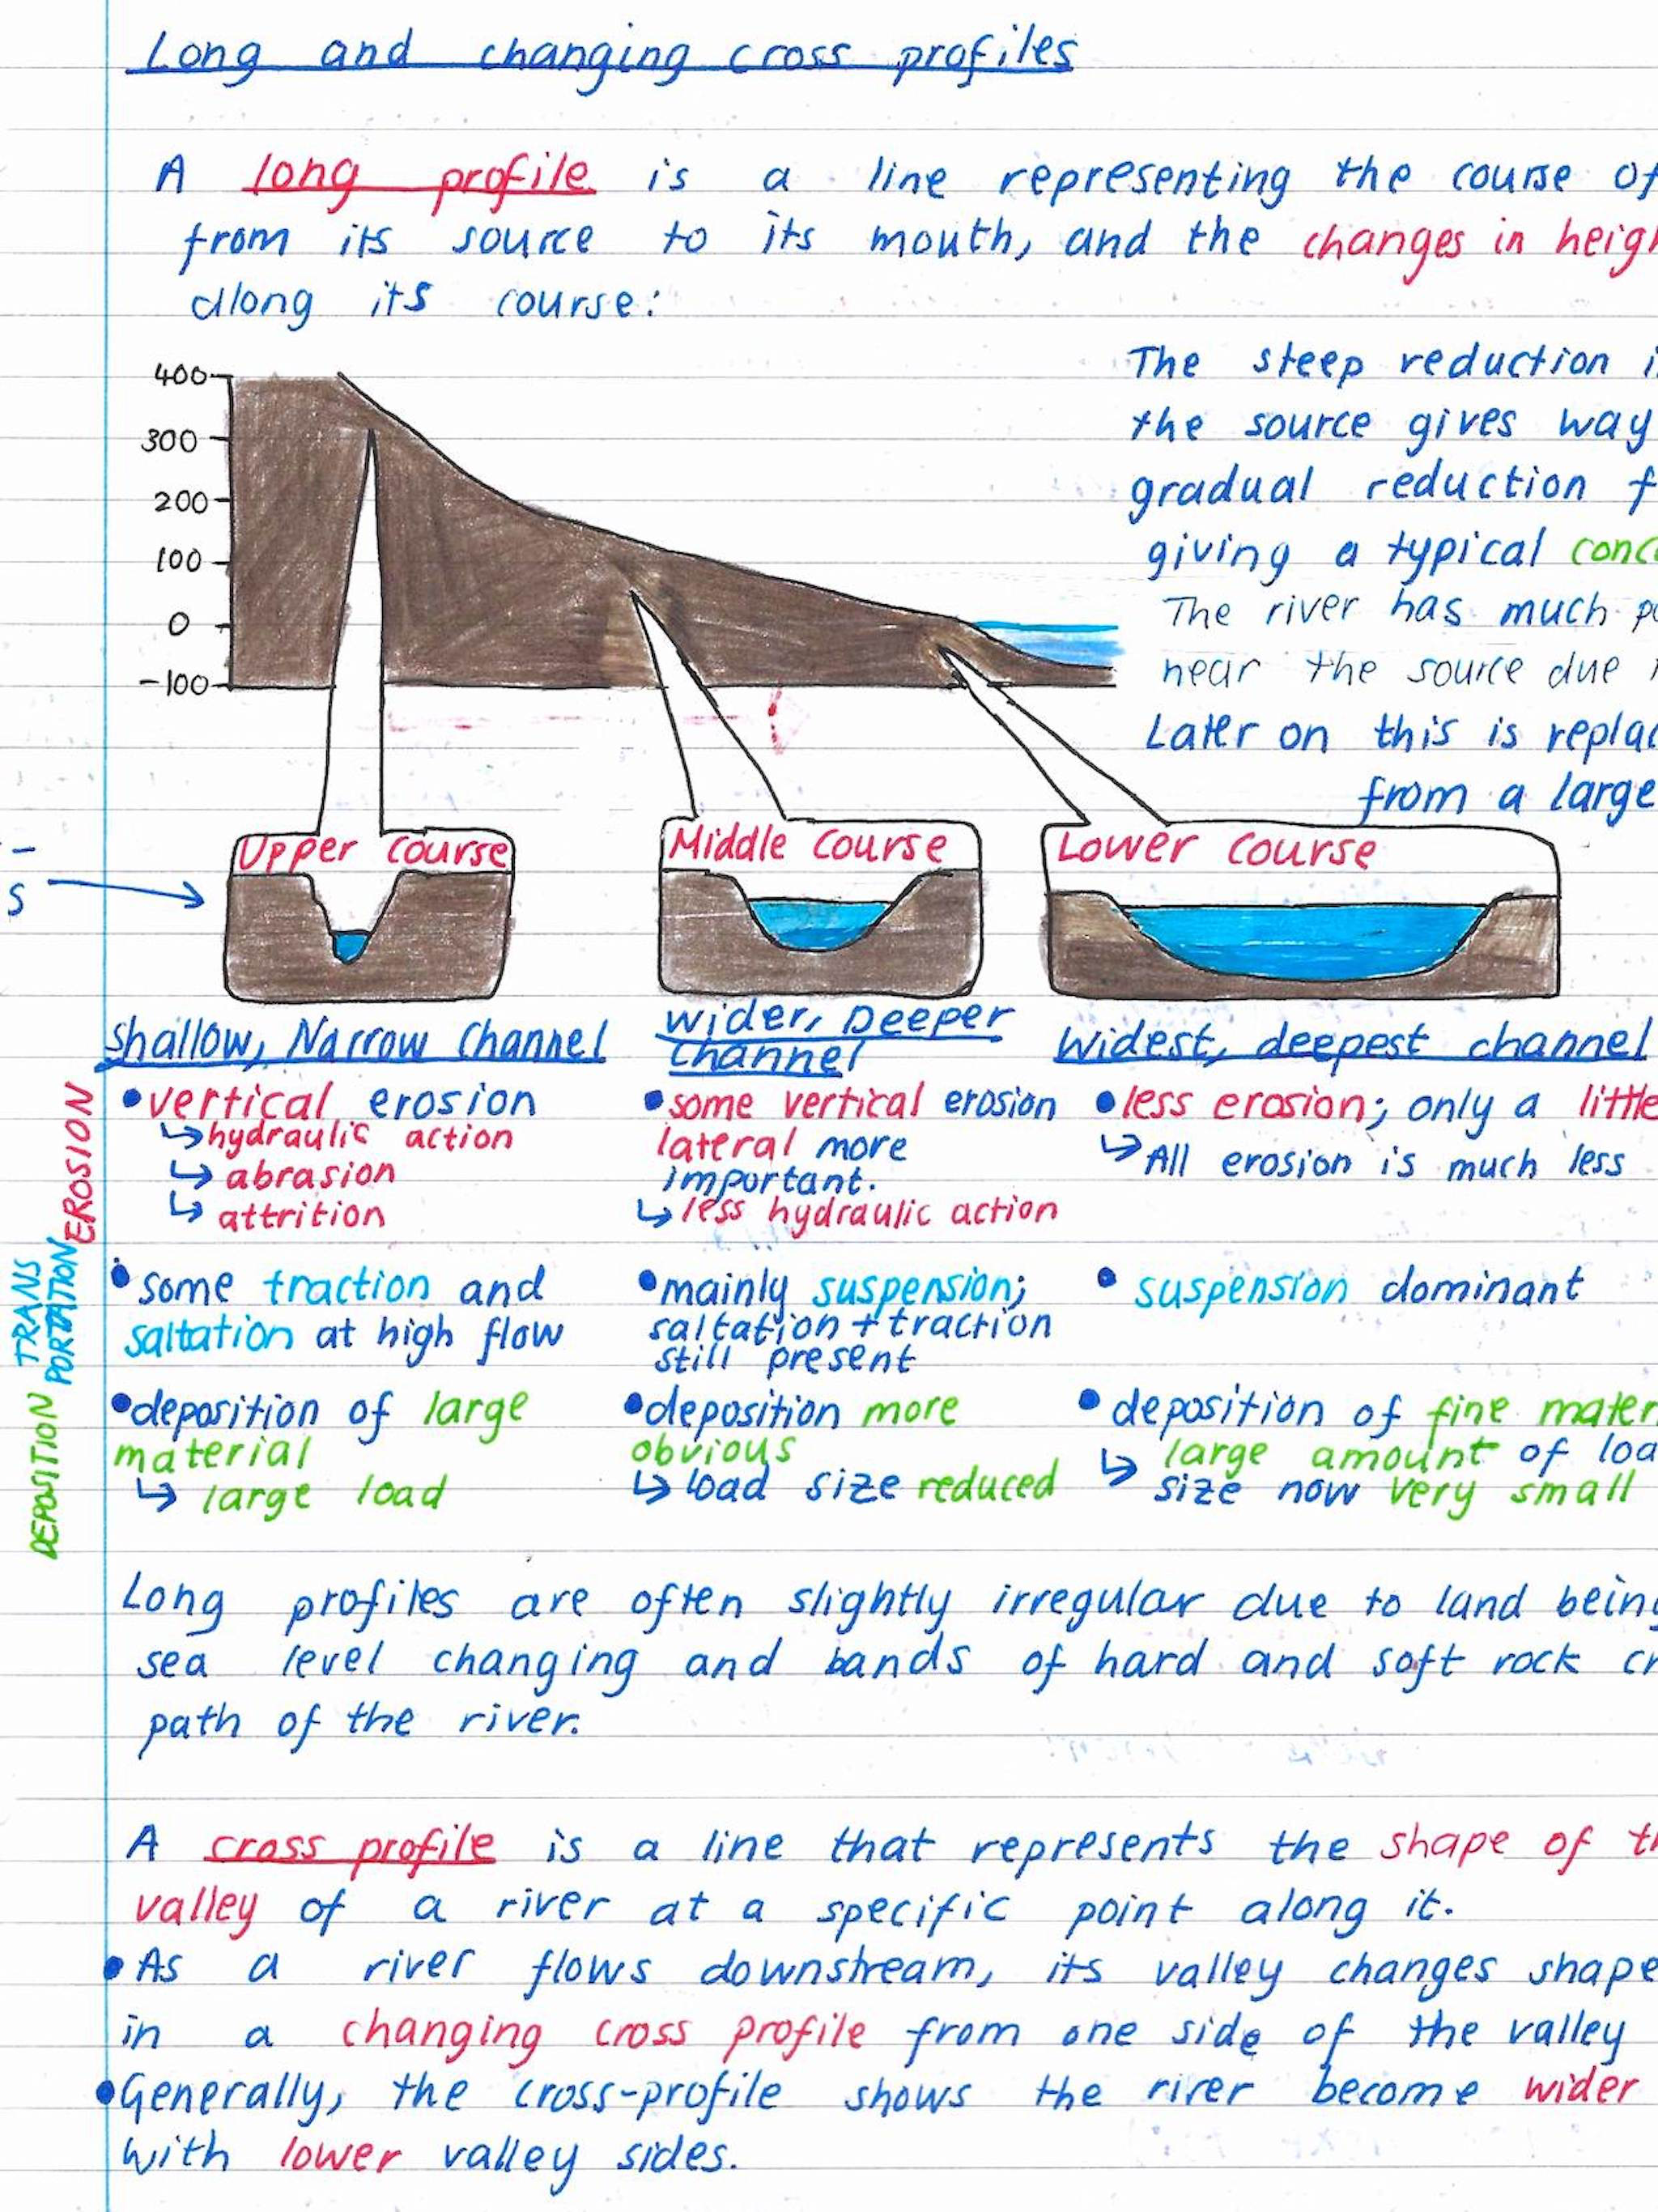 Long and changing cross profiles
A long profile is a line representing the course of
from its source to its mouth, and the changes in heigh
along its course:
The steep reduction i
the source gives way
gradual reduction f
giving a typical conc
The river has much po
near the source due
Later on this is replac
from a large
400
300
200
100
0
-100
S
Upper course
Middle course
Lower course
Shallow, Narrow channel
Wider, Deeper
channel
Widest, deepest channel
EROSION
• vertical erosion
↳ hydraulic action
↳ abrasion
↳ attrition
• some vertical erosion
lateral more
important.
↳ less hydraulic action
• less erosion; only a little
↳ All erosion is much less
TRANS
PORTATION
• some traction and
saltation at high flow
• mainly suspension;
saltation + traction
still present
• suspension dominant
DEPOSITION
• deposition of large
material
↳ large load
• deposition more
obvious
↳ load size reduced
• deposition of fine mater
↳ large amount of loa
size now very small
Long profiles are often slightly irregular due to land being
sea level changing and bands of hard and soft rock cr
path of the river.
A cross profile is a line that represents the shape of th
valley of a river at a specific point along it.
• As a river flows downstream, its valley changes shape
in a changing cross profile from one side of the valley
• Generally, the cross-profile shows the river become wider
with lower valley sides.